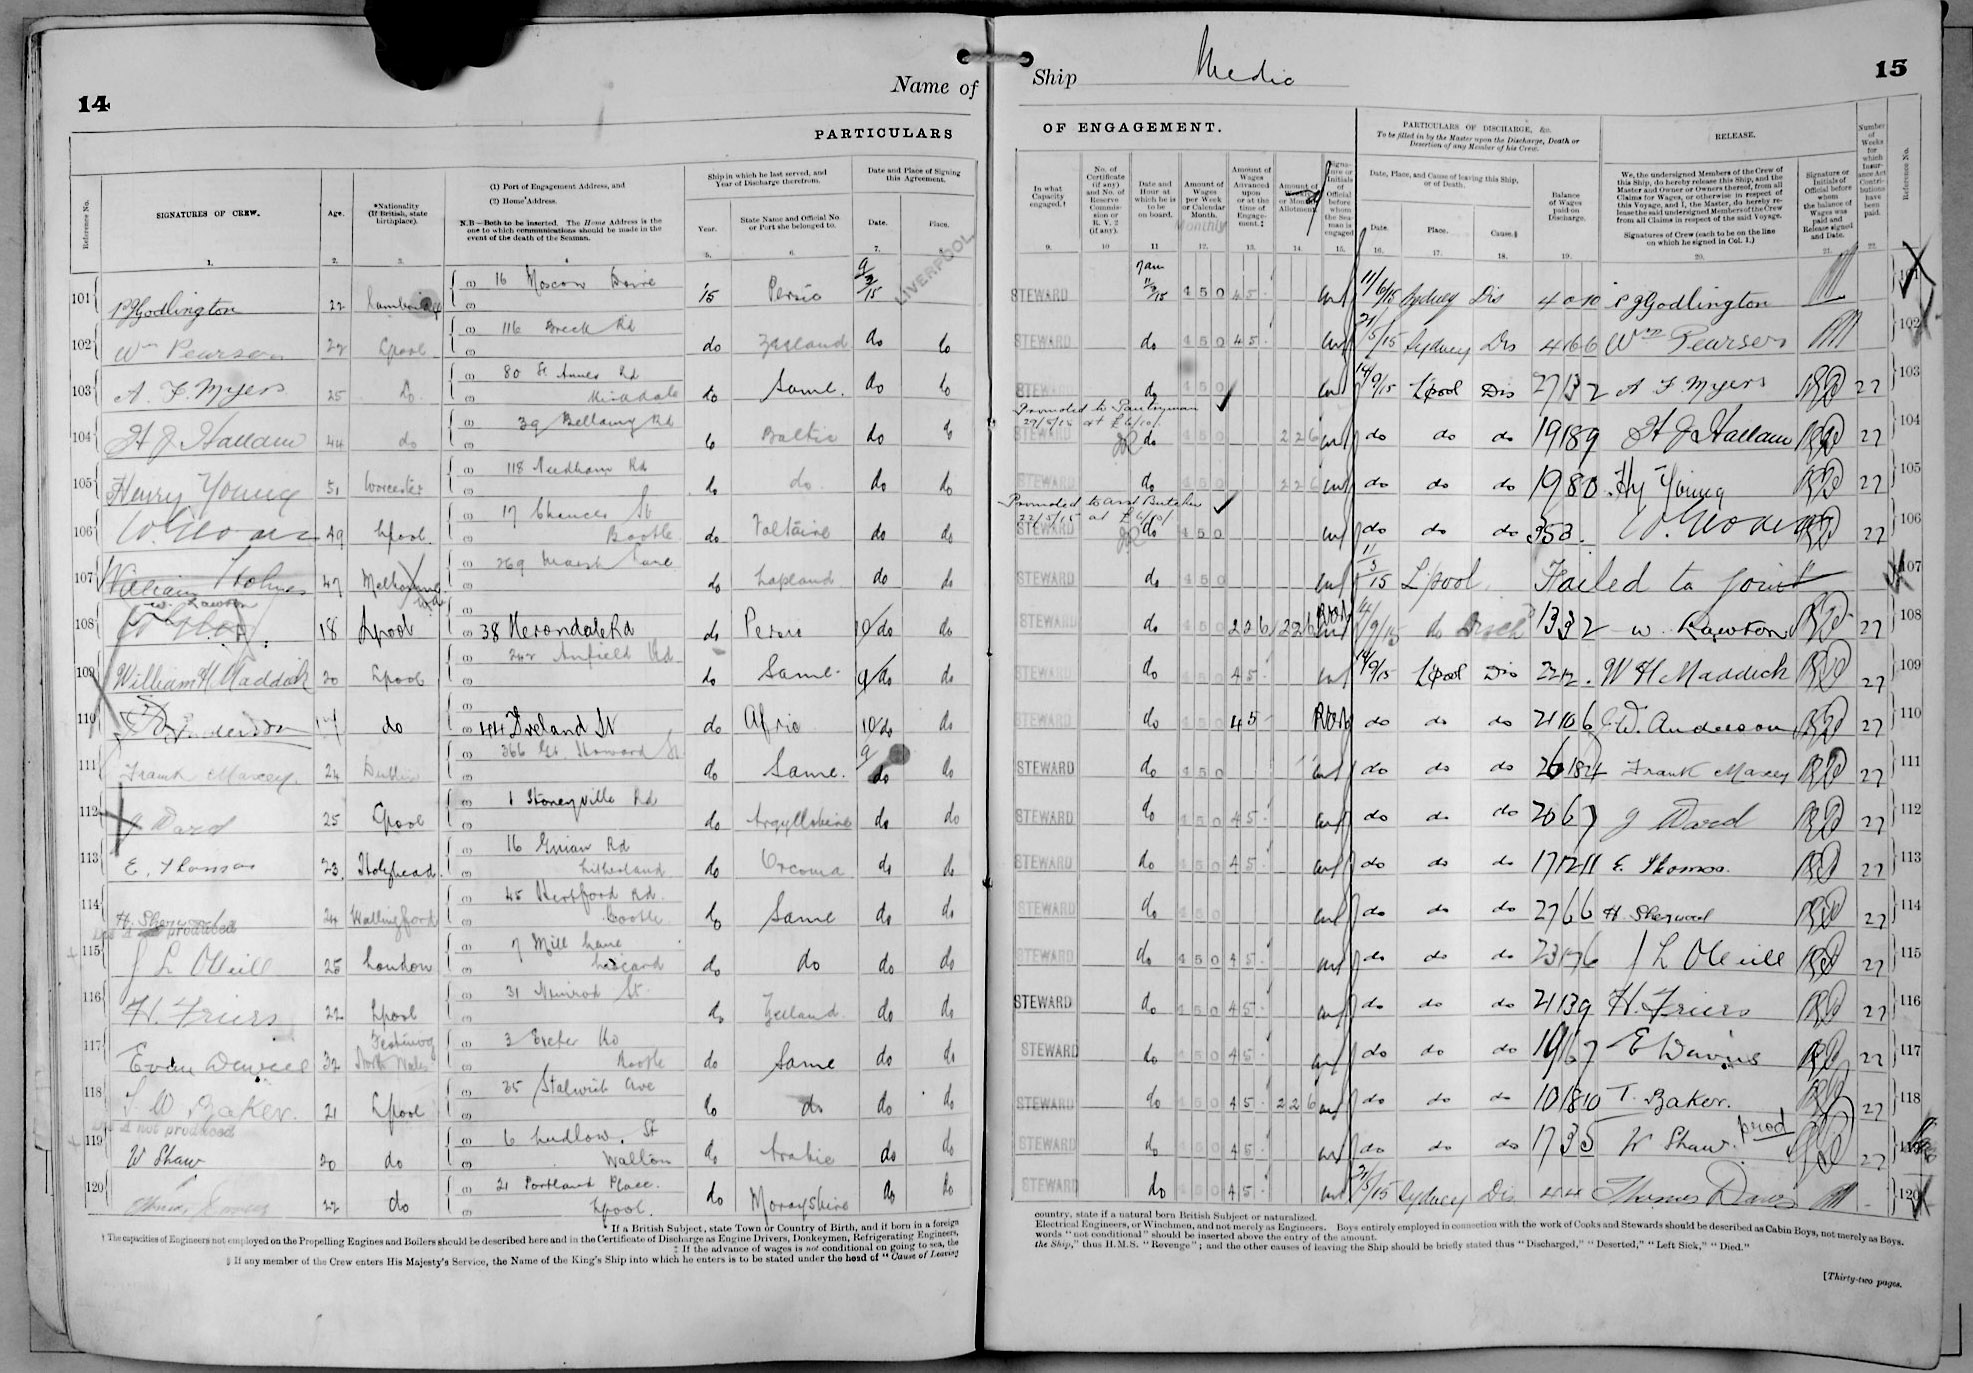 14
Name of
PARTICULARS
Reference No.
SIGNATURES OF CREW.
Age.
*Nationality
(If British, state
birthplace).
(1) Port of Engagement Address, and
(2) Home Address.
N.B—Both to be inserted. The Home Address is the
one to which communications should be made in the
event of the death of the Seaman.
Ship in which he last served, and
Year of Discharge therefrom.
Year.
State Name and Official No.
or Port she belonged to.
Date and Place of Signing
this Agreement.
Date.
Place.
LIVERPOOL
101 P J Godlington 22 16 Moscow Drive '15 Persic 9/3/15
102 Wm Pearson 22 Lpool 116 Breck Rd do Zealand do do
103 A. F. Myers 25 do 80 St Annes Rd do Same. do do
104 H J Hallam 44 do 39 Bellamy Rd do Baltic do do
105 Henry Young 51 Worcester 118 Needham Rd do do do do
106 49 Lpool 17 Chancer St Bootle do Voltaire do do
107 William Holmes 47 Melbourne 269 Marsh Lane do Lapland do do
W. Lawton
108 18 Lpool 38 Herondale Rd do Persic 10/do do
109 William H Maddick 20 Lpool 242 Anfield Rd do Same. 9/do do
110 Anderson 17 do 44 Ireland St do Afric 10/do do
111 Frank Maxey 24 Dublin 366 Gt. Howard St do Same. 9/do do
112 J Ward 25 Lpool 1 Stoneyville Rd do Argyllshire do do
113 E. Thomas 23. Holyhead 16 Rd Litherland do Orcoma do do
114 H. Sherwood 24 Wallingford 45 Hertford Rd. Bootle. do Same do do
produced
115 J L ONeill 25 London 7 Mill Lane Liscard do do do do
116 H. Friers 22 Lpool 31 Nimrod St do Zealand do do
117 Evan Davies 32 Festiniog North Wales 3 Exeter Rd Bootle do Same do do
118 T W Baker. 21 Lpool 35 Stalwick Ave do do do do
not produced
119 W Shaw 20 do 6 Ludlow St Walton do Arabic do do
120 Thomas Davies 22 do 21 Portland Place. Lpool. do Morayshire do do
* If a British Subject, state Town or Country of Birth, and if born in a foreign
† The capacities of Engineers not employed on the Propelling Engines and Boilers should be described here and in the Certificate of Discharge as Engine Drivers, Donkeymen, Refrigerating Engineers,
‡ If the advance of wages is not conditional on going to sea, the
§ If any member of the Crew enters His Majesty's Service, the Name of the King's Ship into which he enters is to be stated under the head of "Cause of Leaving
Ship Medic
15
OF ENGAGEMENT.
PARTICULARS OF DISCHARGE, &c.
To be filled in by the Master upon the Discharge, Death or
Desertion of any Member of his Crew.
RELEASE.
In what
Capacity
engaged.†
No. of
Certificate
(if any)
and No. of
Reserve
Commis-
sion or
R. V. 2
(if any).
Date and
Hour at
which he is
to be
on board.
Amount of
Wages
per Week
or Calendar
Month.
Monthly
Amount of
Wages
Advanced
upon
or at the
time of
Engage-
ment.‡
Amount of
Allotment.
Signa-
ture or
Initials
of
Official
before
whom
the Sea-
man is
engaged
Date, Place, and Cause of leaving this Ship,
or of Death.
Date.
Place.
Cause.§
Balance
of Wages
paid on
Discharge.
We, the undersigned Members of the Crew of
this Ship, do hereby release this Ship, and the
Master and Owner or Owners thereof, from all
Claims for Wages, or otherwise in respect of
this Voyage, and I, the Master, do hereby re-
lease the said undersigned Members of the Crew
from all Claims in respect of the said Voyage.
Signatures of Crew (each to be on the line
on which he signed in Col. 1.)
Signature or
Initials of
Official before
whom
the balance of
Wages was
paid and
Release signed
and Date.
Number
of
Weeks
for
which
Insur-
ance Act
Contri-
butions
have
been
paid.
Reference No.
STEWARD 7am 11/3/15 4 5 0 45 11/6/15 Sydney Dis 4 0 10 P J Godlington 101
STEWARD do 4 5 0 45 21/5/15 Sydney Dis 4 6 6 Wm Pearson 102
STEWARD do 4 5 0 14/9/15 L'pool Dis 27 13 2 A F Myers 27 103
Promoted to Pantryman
STEWARD do 4 5 0 2 2 6 do do do 19 18 9 H J Hallam 27 104
STEWARD do 4 5 0 2 2 6 do do do 19 8 0 Hy Young 27 105
Promoted to asst Butcher
22/5/15 at £6/10/
STEWARD do 4 5 0 do do do 27 106
STEWARD do 4 5 0 11/3/15 L'pool Failed to Join 107
STEWARD do 4 5 0 2 2 6 2 2 6 14/9/15 do Disch 13 3 2 W. Lawton 27 108
STEWARD do 4 5 0 45 14/9/15 L'pool Dis W H Maddick 27 109
STEWARD do 4 5 0 45 do do do 21 10 6 J. W. Anderson 27 110
STEWARD do 4 5 0 do do do 26 18 4 Frank Maxey 27 111
STEWARD do 4 5 0 45 do do do 20 6 7 J Ward 27 112
STEWARD do 4 5 0 45 do do do 17 12 11 E. Thomas. 27 113
STEWARD do 4 5 0 do do do 27 6 6 H. Sherwood 27 114
STEWARD do 4 5 0 45 do do do 23 17 6 J L ONeill 27 115
STEWARD do 4 5 0 45 do do do 21 13 9 H. Friers 27 116
STEWARD do 4 5 0 45 do do do 19 6 7 E Davies 27 117
STEWARD do 4 5 0 45 2 2 6 do do do 10 18 10 T. Baker. 27 118
STEWARD do 4 5 0 45 do do do 17 3 5 W Shaw. prod 27 119
STEWARD do 4 5 0 45 21/5/15 Sydney Dis 4 4 Thomas Davies 120
country, state if a natural born British Subject or naturalized.
Electrical Engineers, or Winchmen, and not merely as Engineers. Boys entirely employed in connection with the work of Cooks and Stewards should be described as Cabin Boys, not merely as Boys.
words "not conditional" should be inserted above the entry of the amount.
the Ship," thus H.M.S. "Revenge"; and the other causes of leaving the Ship should be briefly stated thus "Discharged," "Deserted," "Left Sick," "Died."
[Thirty-two pages.